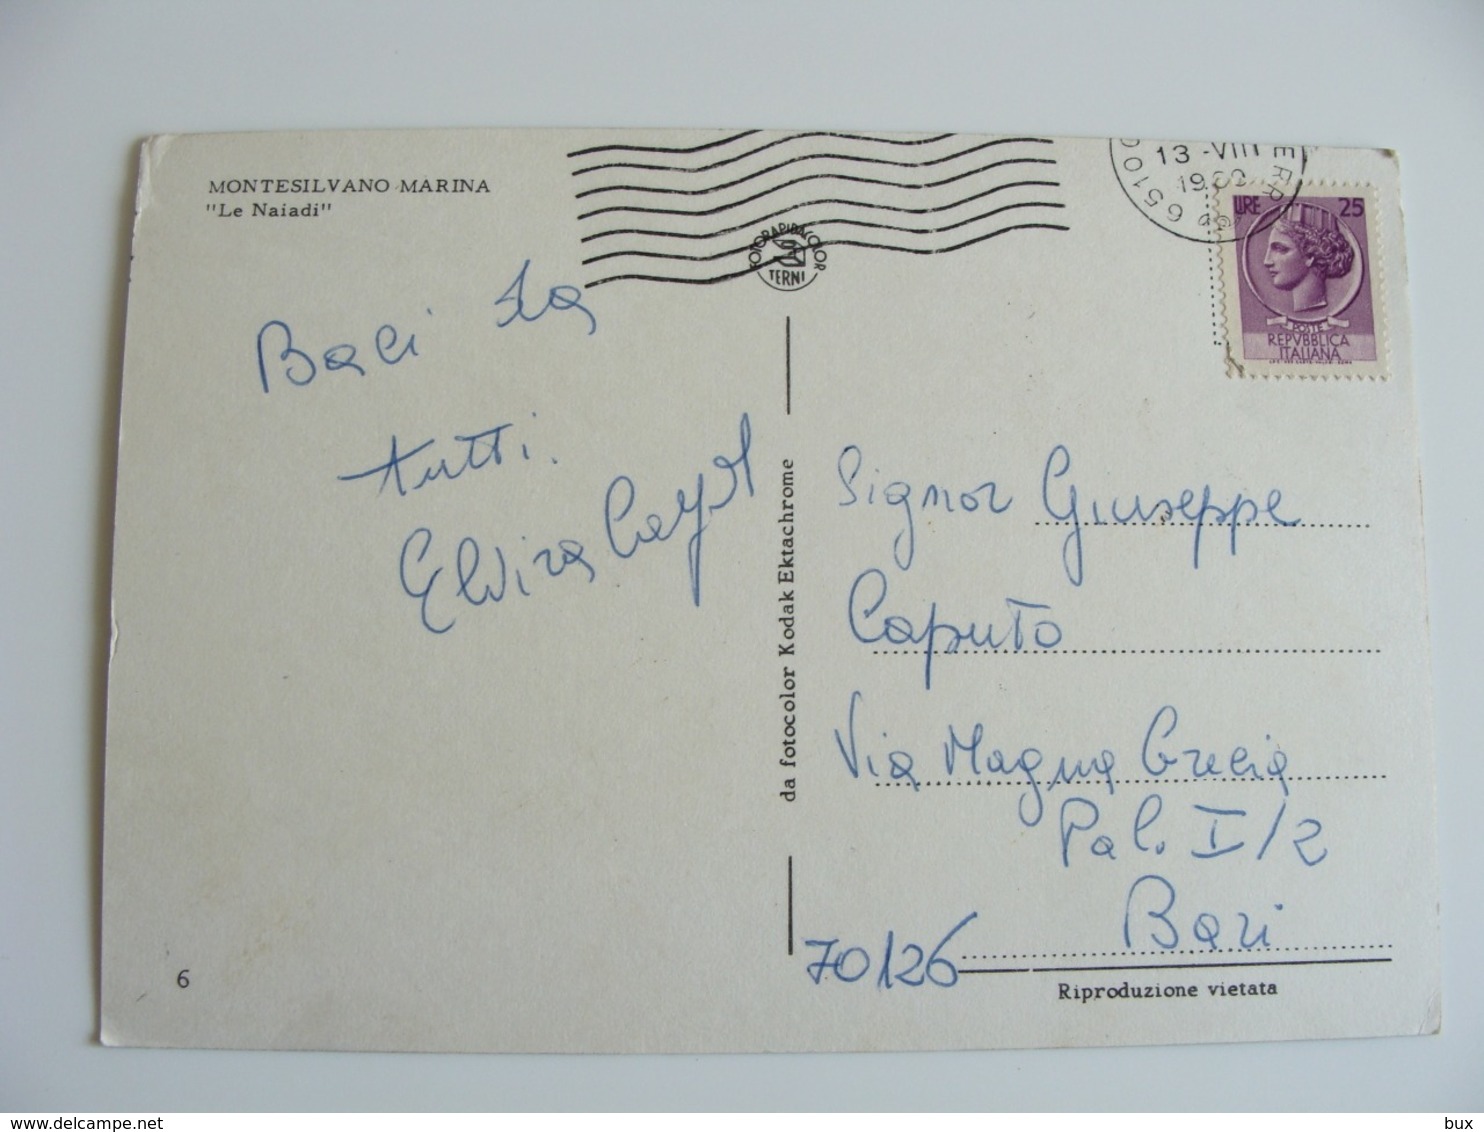 MONTESILVANO MARINA
"Le Naiadi"
Baci da
tutti.
Elvira
6
FOTORAPIDACOLOR
TERNI
da fotocolor Kodak Ektachrome
13 -VIII
LIRE 25
POSTE
REPVBBLICA
ITALIANA
Signor Giuseppe
Caputo
Via Magna Grecia
Pal. I/2
Bari
70126
Riproduzione vietata
www.delcampe.net
bux